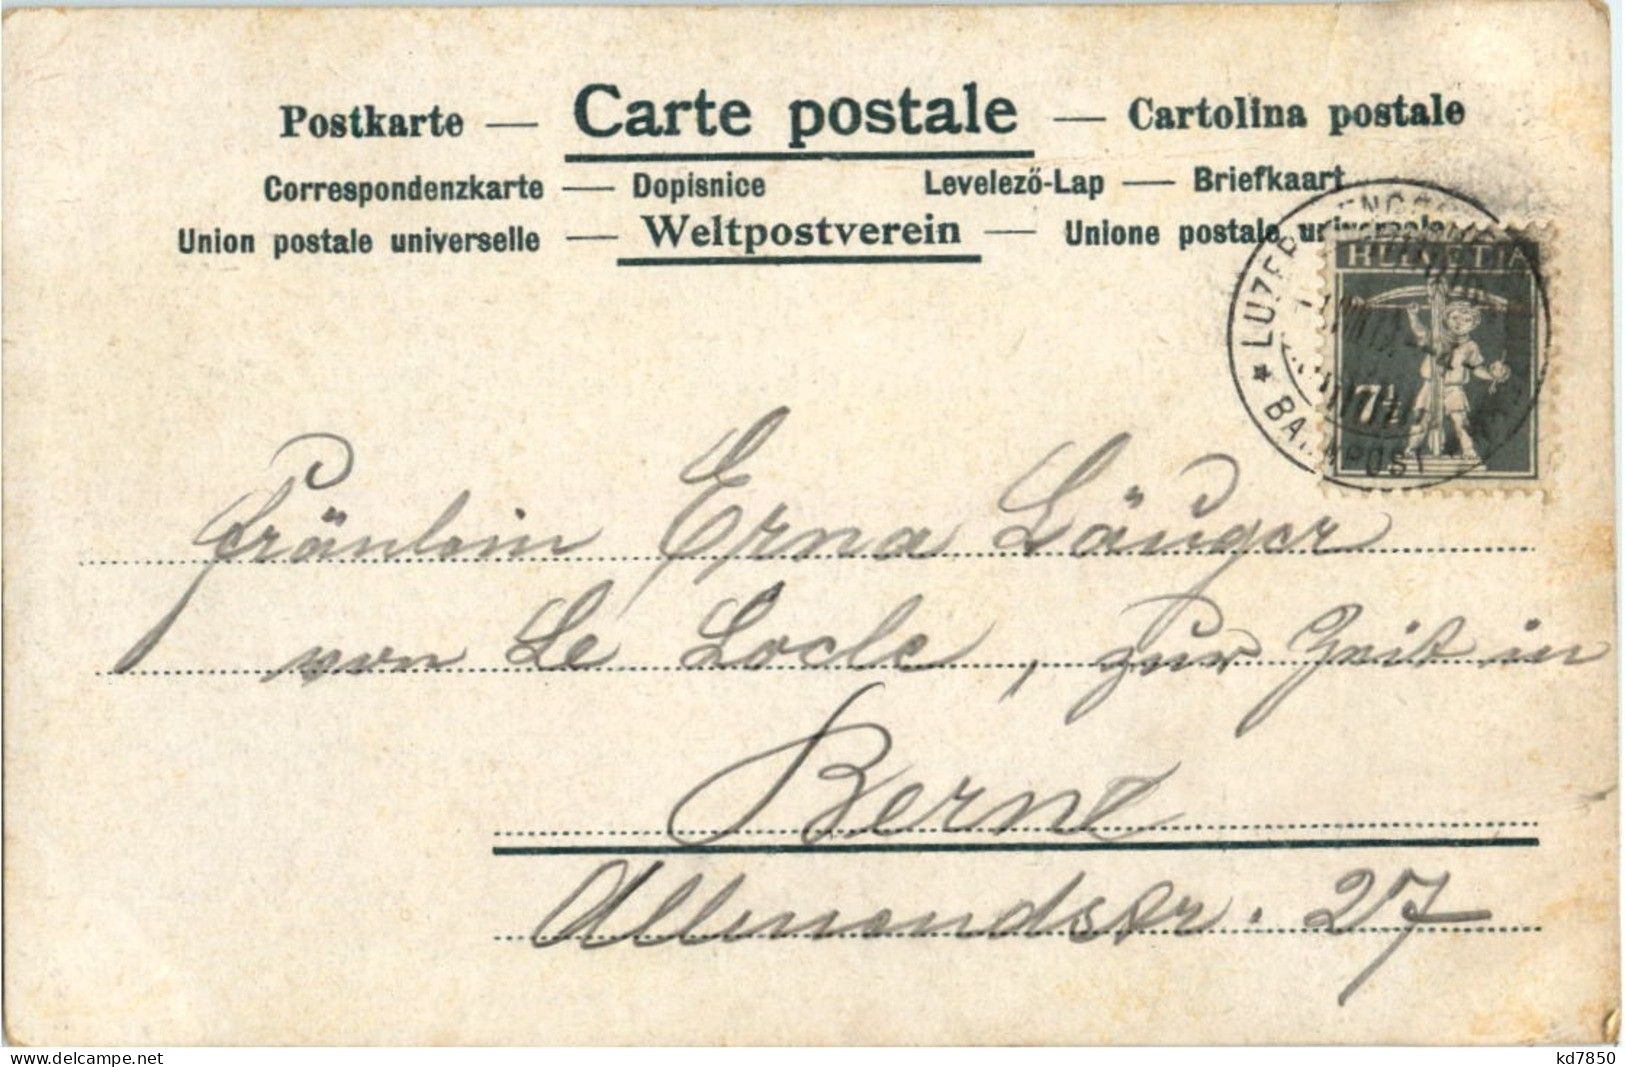 Postkarte — Carte postale — Cartolina postale
Correspondenzkarte — Dopisnice Levelező-Lap — Briefkaart
Union postale universelle — Weltpostverein — Unione postale universale
HELVETIA
7½
* LUZERN
BAHNPOST
Fräulein Erna Läuger
von Le Locle, zur Zeit in
Berne
Allmendstr. 27
www.delcampe.net
kd7850